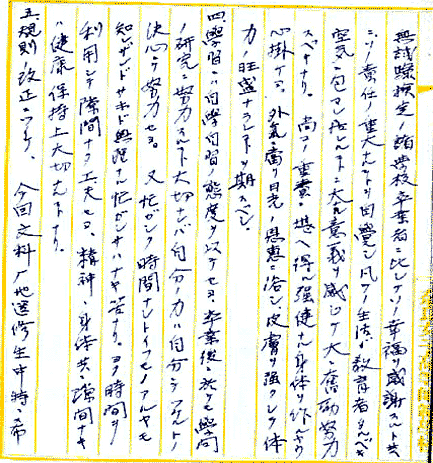 無試験検定ノ諸学校卒業者ニ比シテソノ幸福ヲ感謝スルト共
ニソノ責任ノ重大ナルヲ自覚シ凡テノ生活ガ教育者タルベキ
空気ニ包マレ居ルコトニ大ナル意義ヲ感ジテ大ニ奮励努力
スベキナリ。尚コノ重責ニ堪ヘ得ル強健ナル身体ヲ作ルベク
心掛ケテヨ。外気ニ当リ日光ノ恩恵ニ浴シ皮膚ヲ強クシテ体
力ノ旺盛ナランコトヲ期スベシ
四、学習ニハ自学自習ノ態度ヲ以テセヨ。卒業後ニ於テモ学問
ノ研究ニ努力スルコト大切ナレバ自分ノ力ハ自分デツケルトノ
決心デ努力セヨ。又忙ガシク時間ナシトイフモノアルヤモ
知レザレドサホド無理ナル忙ガシサハナキ筈ナリ。ヨク時間ヲ
利用シテ隙間ナク工夫セヨ。精神、身体共ニ隙間ナキ
ハ健康保持上大切ナコトナリ。
五、規則ノ改正ニツイテ。今回文科ノ地選修生中時ニ希